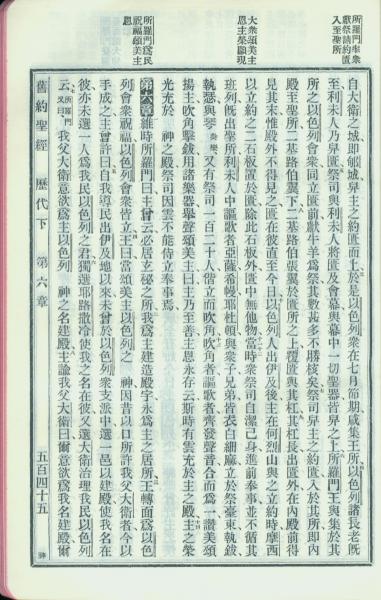 所羅門率衆
獻祭請約匱
入至聖所
大衆頌美主
恩主榮顯現
所羅門爲民
祝福頌美主
恩
自大衛之城即郇城舁主之約匱而上於是以色列衆在七月節期咸集王所以色列諸長老既
至利未人乃舁匱祭司與利未人將匱及會幕與幕中一切聖器皆舁之上所羅門王與集於其
所之以色列會衆同立匱前獻牛羊爲祭其數甚多不勝核矣祭司舁主之約匱入於其所即內
殿至聖所二基路伯翼下二基路伯張翼於匱所之上覆匱與其杠其杠長出匱外在內殿前得
見其末惟殿外不得見之匱在彼直至今日以色列人出伊及後主在何烈山與之立約時摩西
以立約之二石板置於匱除此石板外匱中無他物當時衆祭司自潔己身進前奉事並不循其
班列既出聖所利未人中謳歌者亞薩希幔耶杜頓與衆子兄弟皆衣白細麻立於祭臺東執鈸
執瑟與琴奏樂又有祭司一百二十人偕立而吹角吹角者謳歌者齊發聲音合而爲一讚美頌
揚主吹角擊鈸用諸樂器舉聲頌美主曰主乃至善主恩永存云斯時有雲充於主之殿主之榮
光充於 神之殿祭司因雲不能侍立奉事焉
第六章維時所羅門曰主曾云必居玄秘之所我爲主建造殿宇永爲主之居所王轉面爲以色
列會衆祝福以色列會衆皆立王曰當頌美主以色列之 神因昔以口所許我父大衛者今以
手成之主曾許曰自我導民出伊及地以來未曾於以色列衆支派中選一邑以建殿使我名在
彼亦未選一人爲我民以色列之君獨選耶路撒冷使我之名在彼又選大衛治理我民以色列
云所羅門又曰我父大衛意欲爲主以色列 神之名建殿主諭我父大衛曰爾意欲爲我名建殿爾
舊約聖經 歷代下 第六章 五百四十五 神